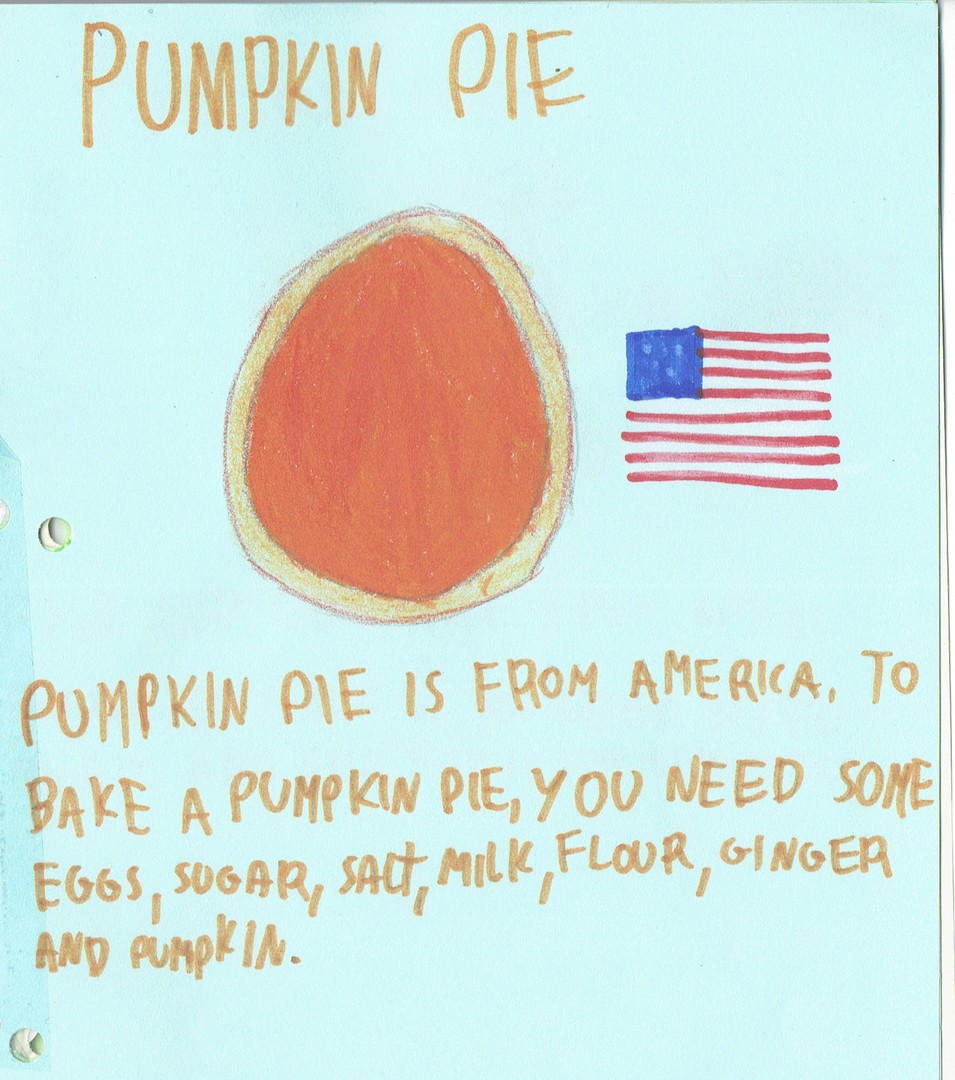 PUMPKIN PIE
PUMPKIN PIE IS FROM AMERICA. TO
BAKE A PUMPKIN PIE, YOU NEED SOME
EGGS, SUGAR, SALT, MILK, FLOUR, GINGER
AND PUMPKIN.